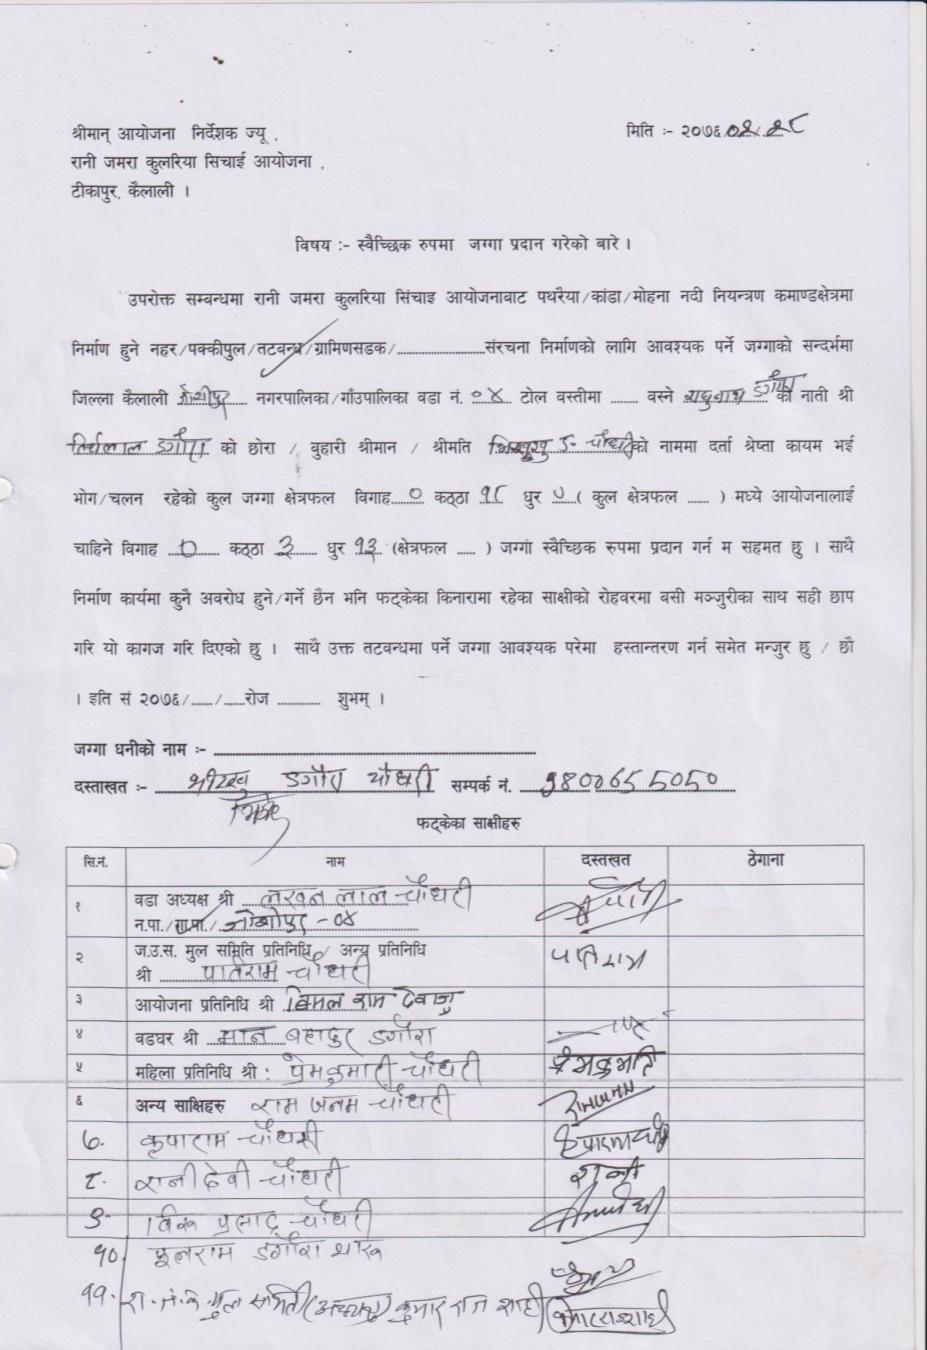 श्रीमान् आयोजना निर्देशक ज्यू ,
मिति :- २०७६
रानी जमरा कुलरिया सिचाई आयोजना ,
टीकापुर, कैलाली ।
विषय :- स्वैच्छिक रुपमा जग्गा प्रदान गरेको बारे ।
उपरोक्त सम्बन्धमा रानी जमरा कुलरिया सिंचाइ आयोजनावाट पथरैया/कांडा/मोहना नदी नियन्त्रण कमाण्डक्षेत्रमा
निर्माण हुने नहर/पक्कीपुल/तटवन्ध/ग्रामिणसडक/........................संरचना निर्माणको लागि आवश्यक पर्ने जग्गाको सन्दर्भमा
जिल्ला कैलाली जोशीपुर नगरपालिका/गाँउपालिका वडा नं. ०४ टोल वस्तीमा ....... वस्ने डगौरा को नाती श्री
डगौरा को छोरा / वुहारी श्रीमान / श्रीमति चौधरी को नाममा दर्ता श्रेष्ता कायम भई
भोग/चलन रहेको कुल जग्गा क्षेत्रफल विगाह ० कठ्ठा १८ धुर ० ( कुल क्षेत्रफल ...... ) मध्ये आयोजनालाई
चाहिने विगाह ० कठ्ठा ३ धुर १३ (क्षेत्रफल ..... ) जग्गां स्वैच्छिक रुपमा प्रदान गर्न म सहमत छु । साथै
निर्माण कार्यमा कुनै अवरोध हुने/गर्ने छैन भनि फट्केका किनारामा रहेका साक्षीको रोहवरमा वसी मञ्जुरीका साथ सही छाप
गरि यो कागज गरि दिएको छु । साथै उक्त तटवन्धमा पर्ने जग्गा आवश्यक परेमा हस्तान्तरण गर्न समेत मन्जुर छु / छौ
। इति सं २०७६/....../......रोज ............ शुभम् ।
जग्गा धनीको नाम :- ........................
दस्ताखत :- डगौरा चौधरी सम्पर्क नं. 9800655050
फट्केका साक्षीहरु
सि.नं. नाम दस्तखत ठेगाना
१ वडा अध्यक्ष श्री लखन लाल चौधरी
न.पा./गा.पा./ जोशीपुर -०४
२ ज.उ.स. मुल समिति प्रतिनिधि/ अन्य प्रतिनिधि
श्री पतिराम चौधरी पतिराम
३ आयोजना प्रतिनिधि श्री विमल राम
४ वडघर श्री मान बहादुर डगौरा
५ महिला प्रतिनिधि श्री : प्रेमकुमारी चौधरी प्रेमकुमारी
६ अन्य साक्षिहरु राम जनम चौधरी रामजनम
७. कृपाराम चौधरी
८. रानी देवी चौधरी रानी
९. प्रसाद चौधरी
१० फूलराम डगौरा थारू
११. मुल समिति (अध्यक्ष) कुमार राज शाही